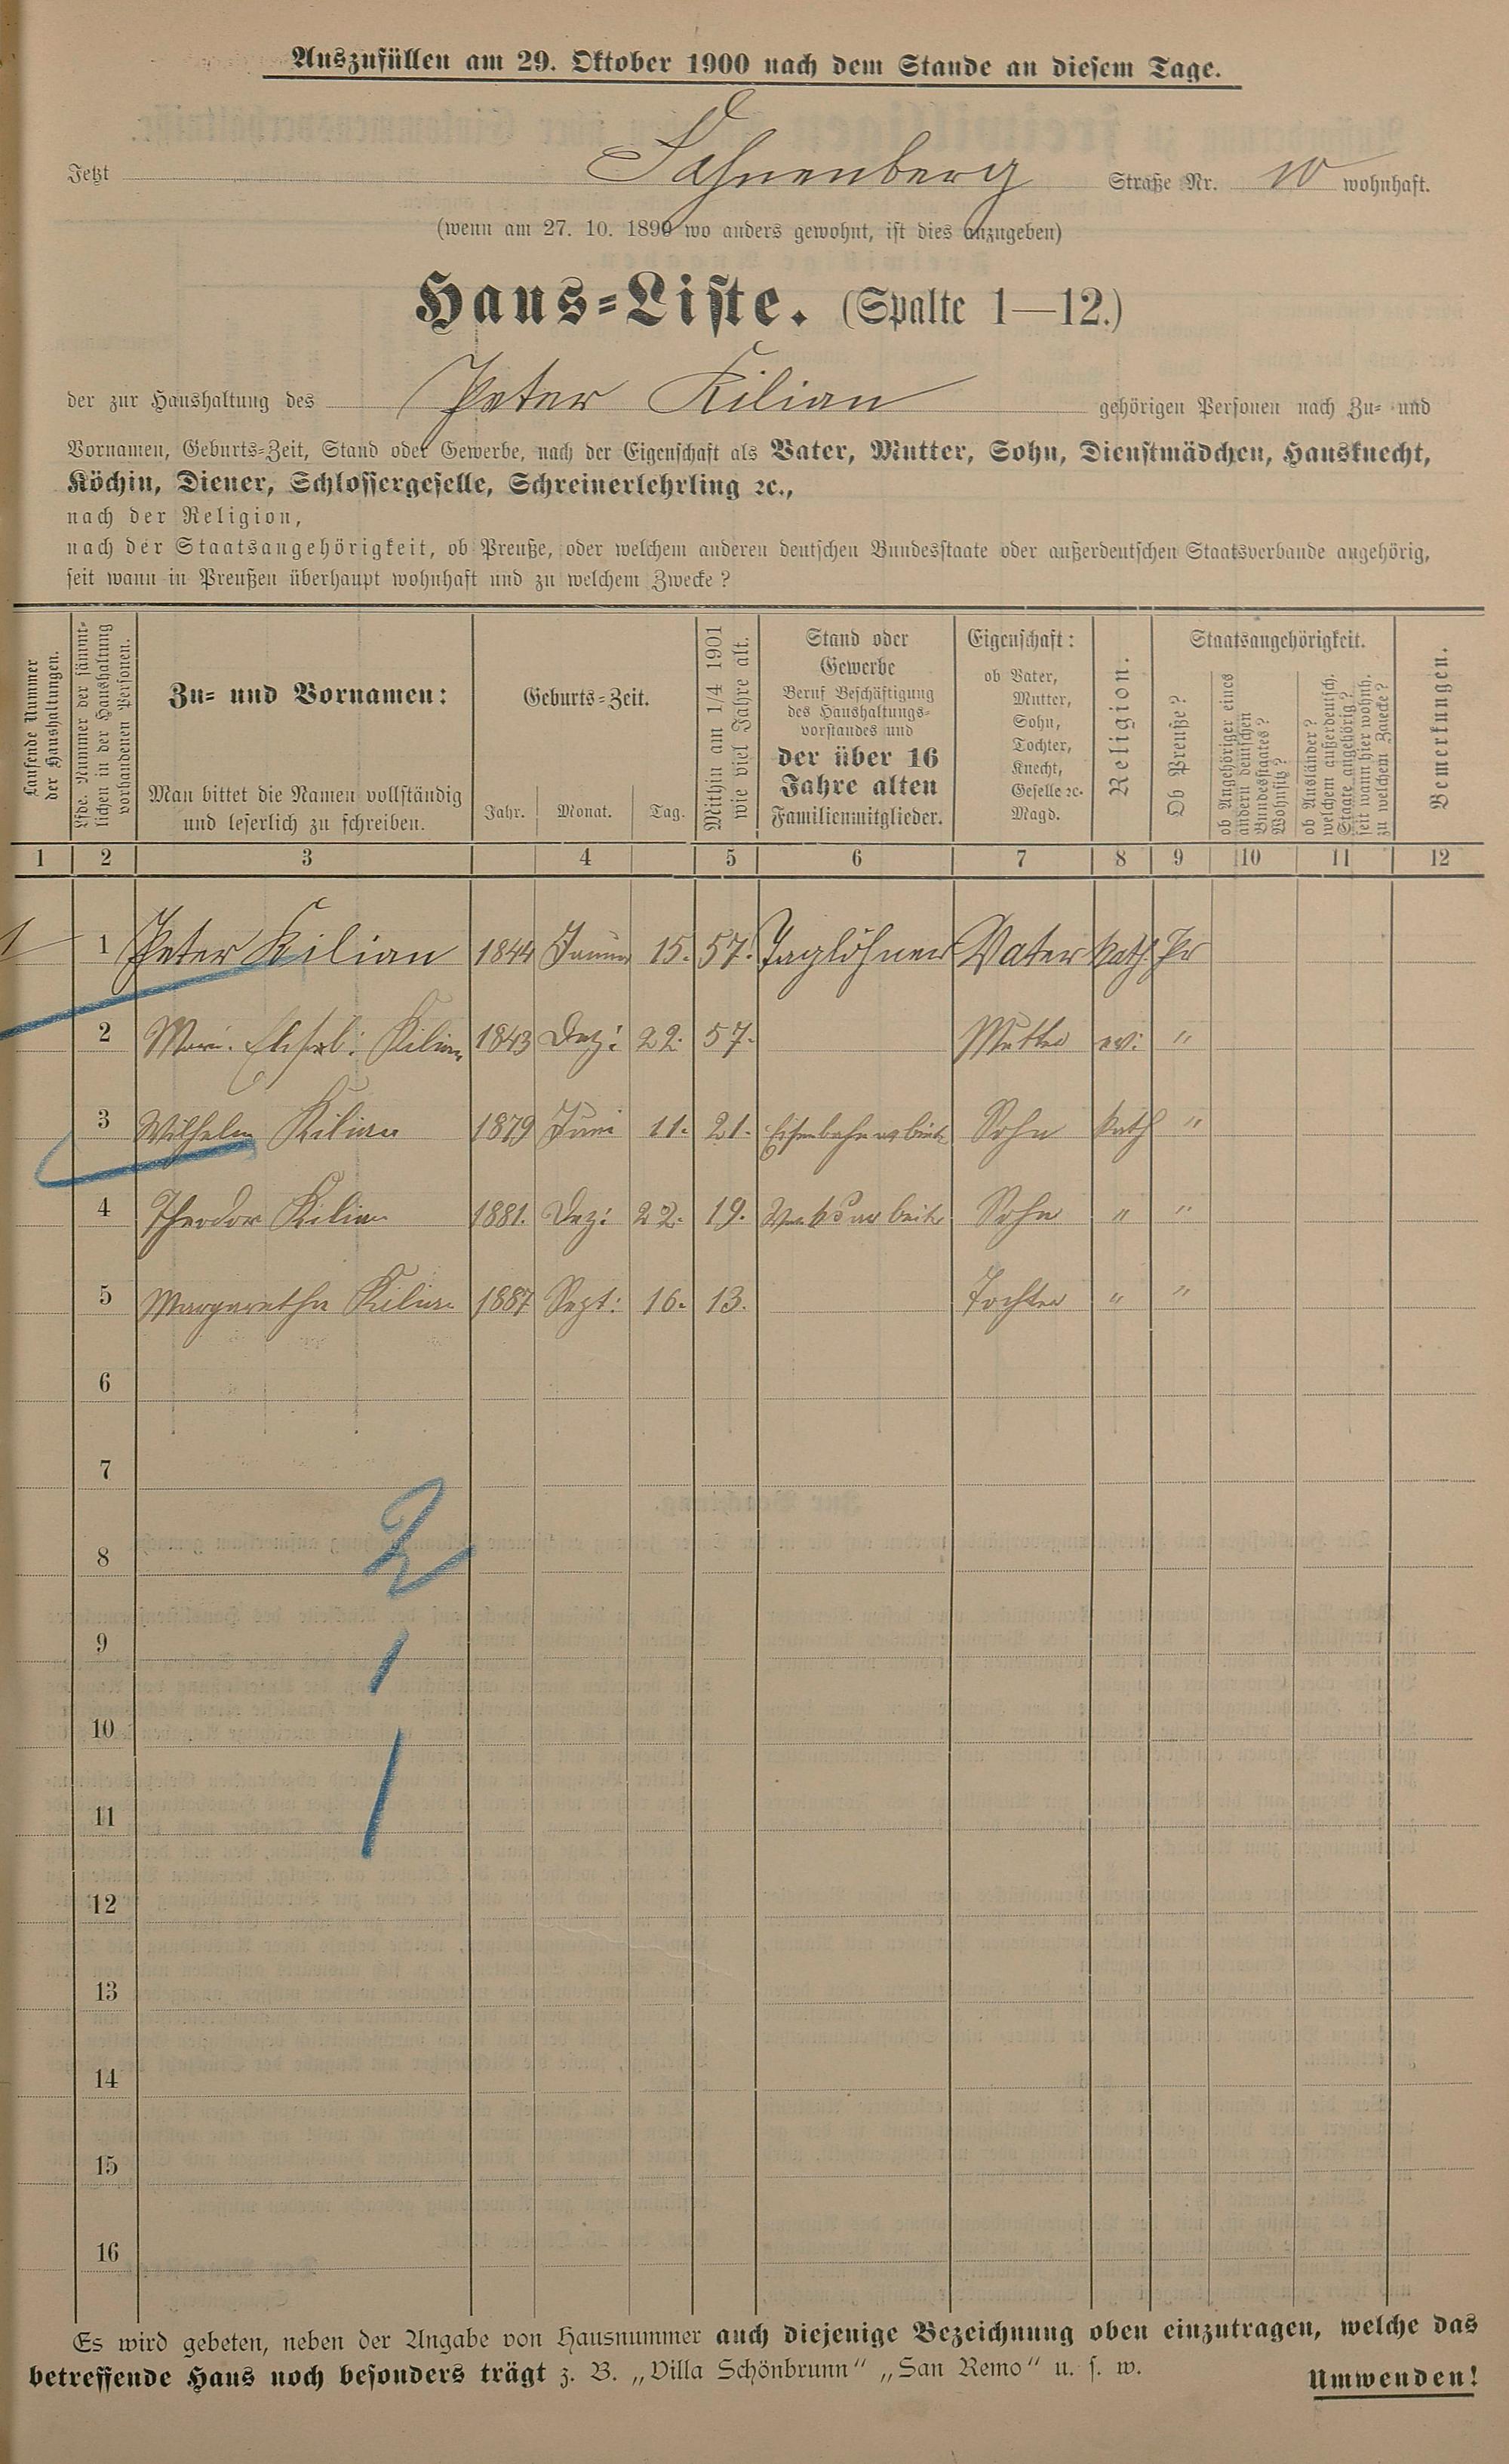 Auszufüllen am 29. Oktober 1900 nach dem Stande an diesem Tage.
Jetzt Lahnenberg Straße Nr. 10 wohnhaft.
(wenn am 27. 10. 1899 wo anders gewohnt, ist dies anzugeben)
Haus-Liste. (Spalte 1—12.)
der zur Haushaltung des Peter Kilian gehörigen Personen nach Zu- und
Vornamen, Geburts-Zeit, Stand oder Gewerbe, nach der Eigenschaft als Vater, Mutter, Sohn, Dienstmädchen, Hausknecht,
Köchin, Diener, Schlossergeselle, Schreinerlehrling ꝛc.,
nach der Religion,
nach der Staatsangehörigkeit, ob Preuße, oder welchem anderen deutschen Bundesstaate oder außerdeutschen Staatsverbande angehörig,
seit wann in Preußen überhaupt wohnhaft und zu welchem Zwecke?
Laufende Nummer
der Haushaltungen.
Lfde. Nummer der sämmt-
lichen in der Haushaltung
vorhandenen Personen.
Zu- und Vornamen:
Man bittet die Namen vollständig
und leserlich zu schreiben.
Geburts-Zeit.
Jahr. Monat. Tag.
Mithin am 1/4 1901
wie viel Jahre alt.
Stand oder
Gewerbe
Beruf Beschäftigung
des Haushaltungs-
vorstandes und
der über 16
Jahre alten
Familienmitglieder.
Eigenschaft:
ob Vater,
Mutter,
Sohn,
Tochter,
Knecht,
Geselle ꝛc.
Magd.
Religion.
Staatsangehörigkeit.
Ob Preuße?
ob Angehöriger eines
andern deutschen
Bundesstaates?
Wohnsitz?
ob Ausländer?
welchem außerdeutsch.
Staate angehörig?
seit wann hier wohnh.
zu welchem Zwecke?
Bemerkungen.
1 2 3 4 5 6 7 8 9 10 11 12
1 1 Peter Kilian 1844 Januar 15. 57. Taglöhner Vater kath. Pr
2 Mari. Elisab: Kilian 1843 Dez: 22. 57. Mutter ev: "
3 Wilhelm Kilian 1879 Juni 11. 21. Eisenbahnarbeiter Sohn kath "
4 Theodor Kilian 1881. Dez: 22. 19. Werksarbeiter Sohn " "
5 Margaretha Kilian 1887 Sept: 16. 13. Tochter " "
6
7
2
8
9
1
10
1
11
12
13
14
15
16
Es wird gebeten, neben der Angabe von Hausnummer auch diejenige Bezeichnung oben einzutragen, welche das
betreffende Haus noch besonders trägt z. B. „Villa Schönbrunn“ „San Remo“ u. s. w.
Umwenden!